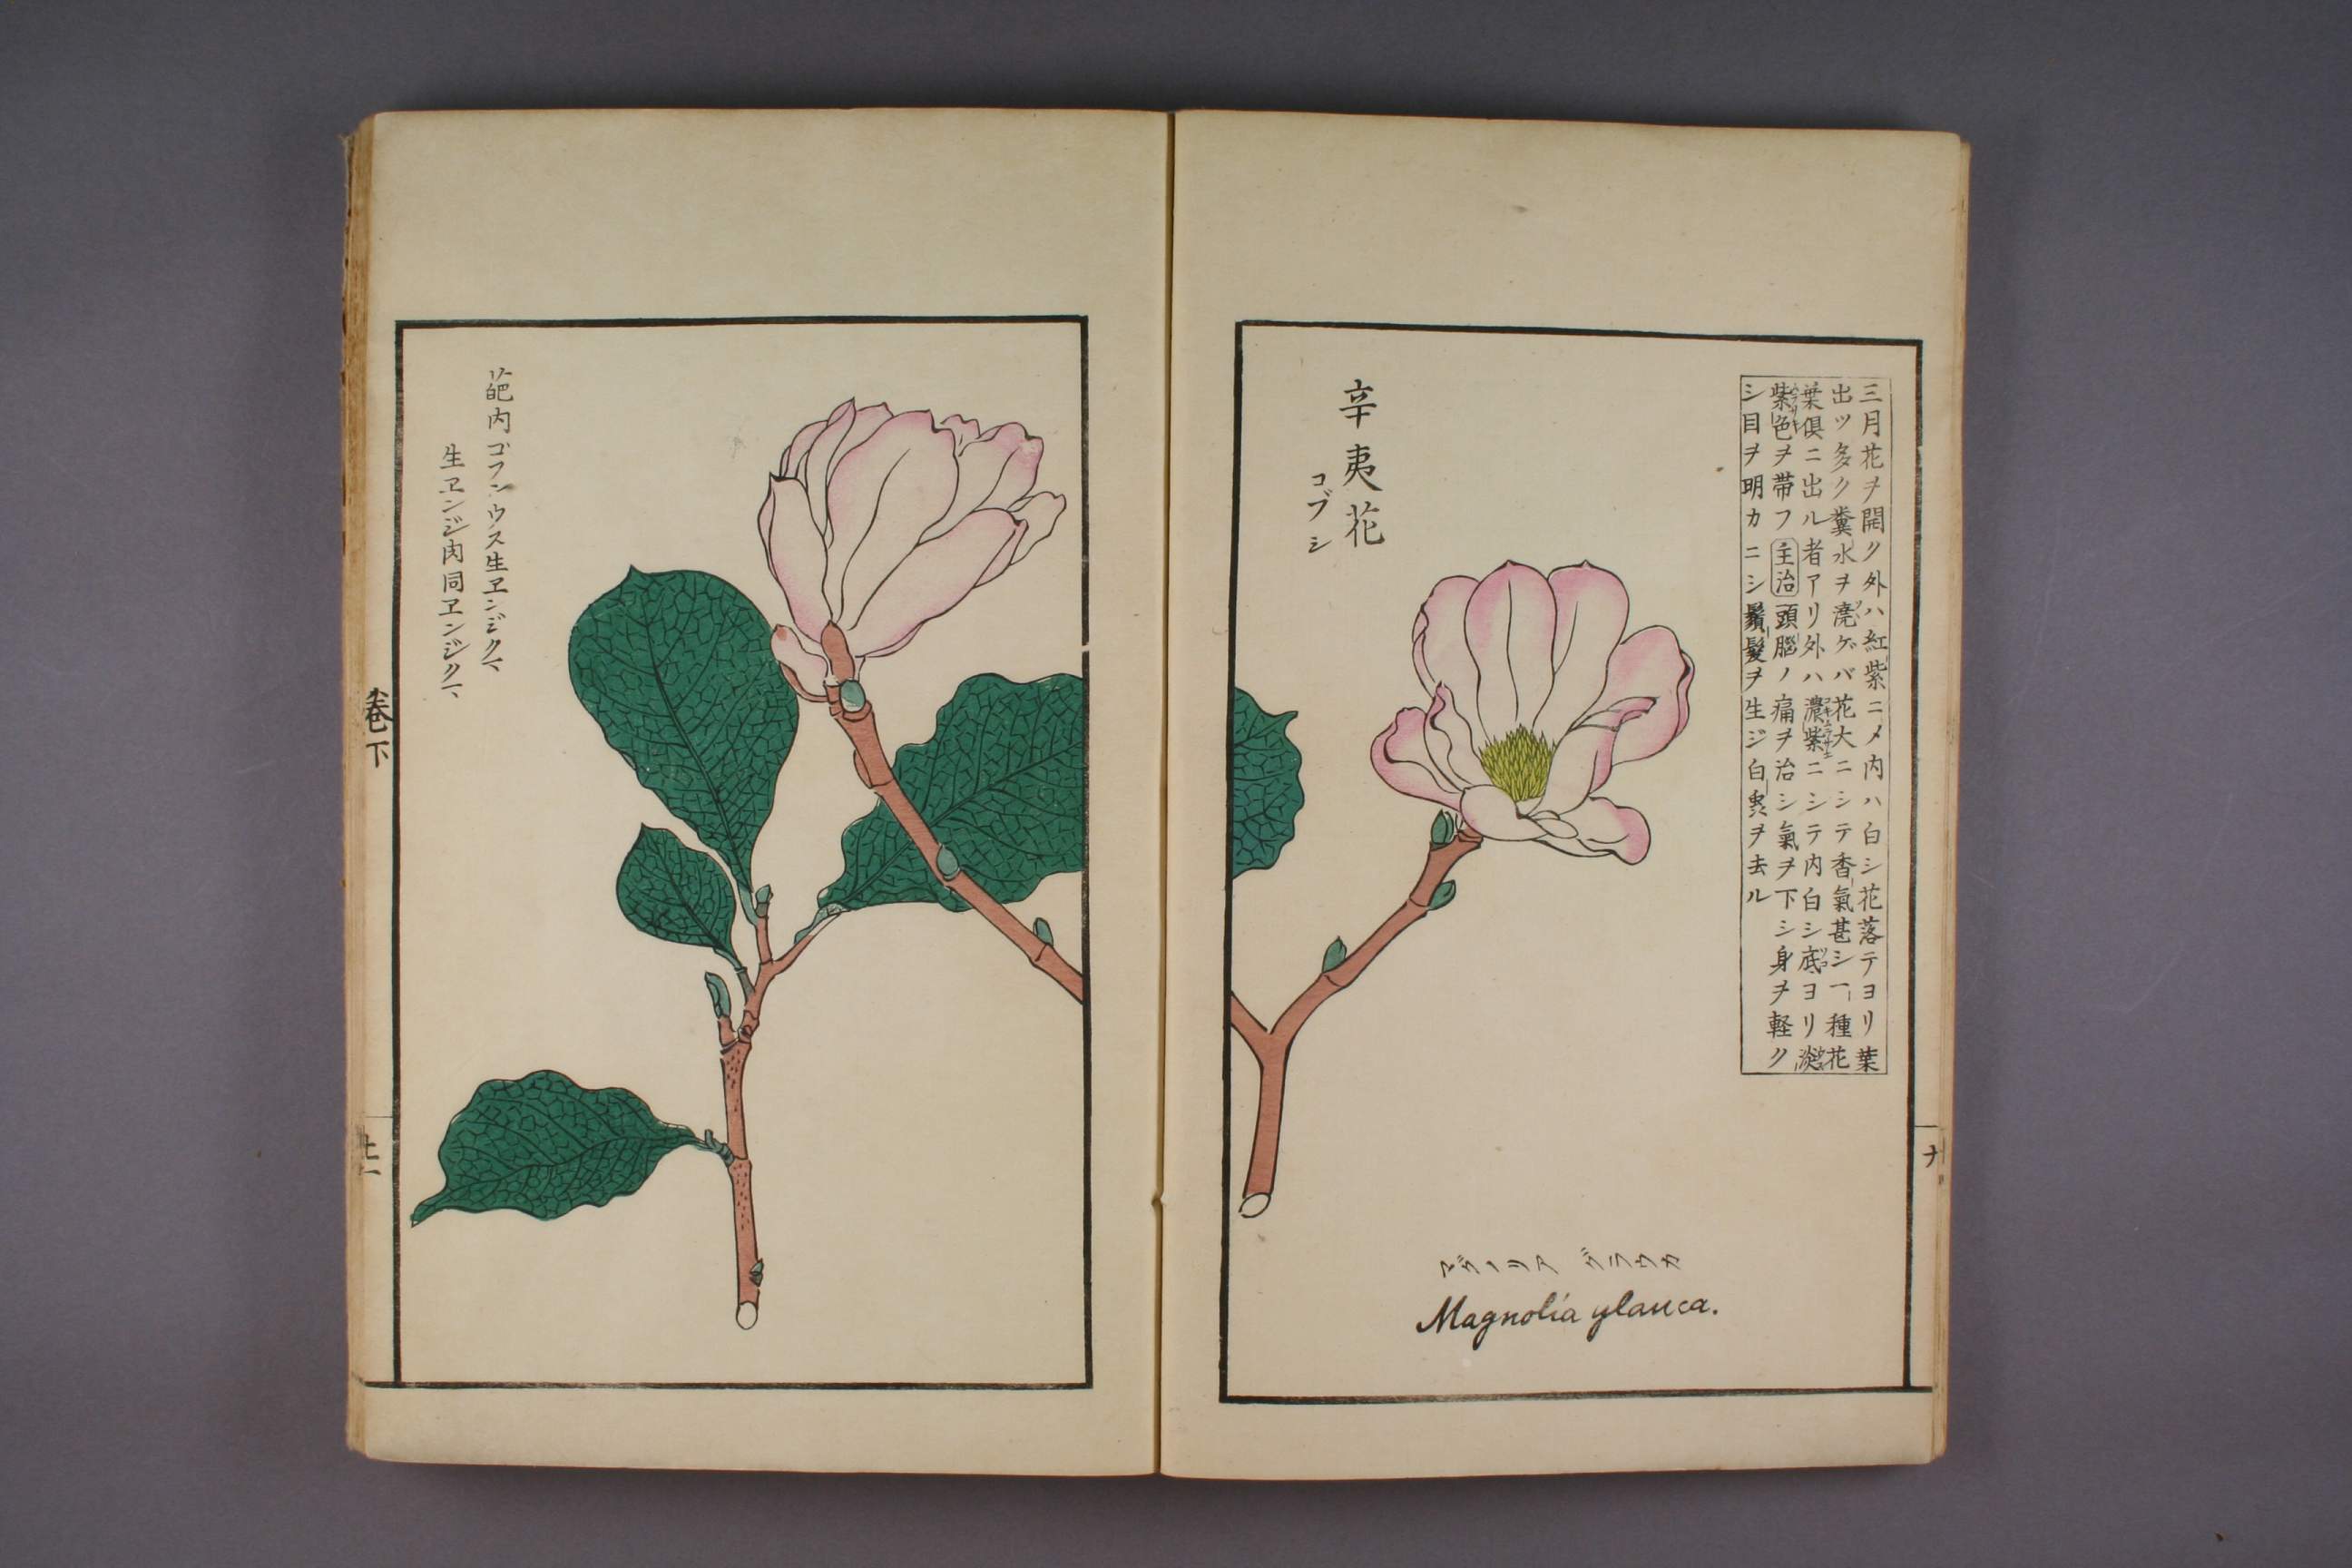 三月花ヲ開ク外ハ紅紫ニメ内ハ白シ花落テヨリ葉
出ツ多ク糞水ヲ澆ゲバ花大ニシテ香氣甚シ一種花
葉俱ニ出ル者アリ外ハ濃紫ニシテ内白シ底ヨリ淡
紫色ヲ帯フ主治頭腦ノ痛ヲ治シ氣ヲ下シ身ヲ軽ク
シ目ヲ明カニシ鬚髪ヲ生ジ白ヲ去ル
辛夷花
コブシ
マグノリア グラウカ
Magnolia glauca.
葩内ゴフンウス生ヱンジクマ
生ヱンジ肉同ヱンジクマ
卷下